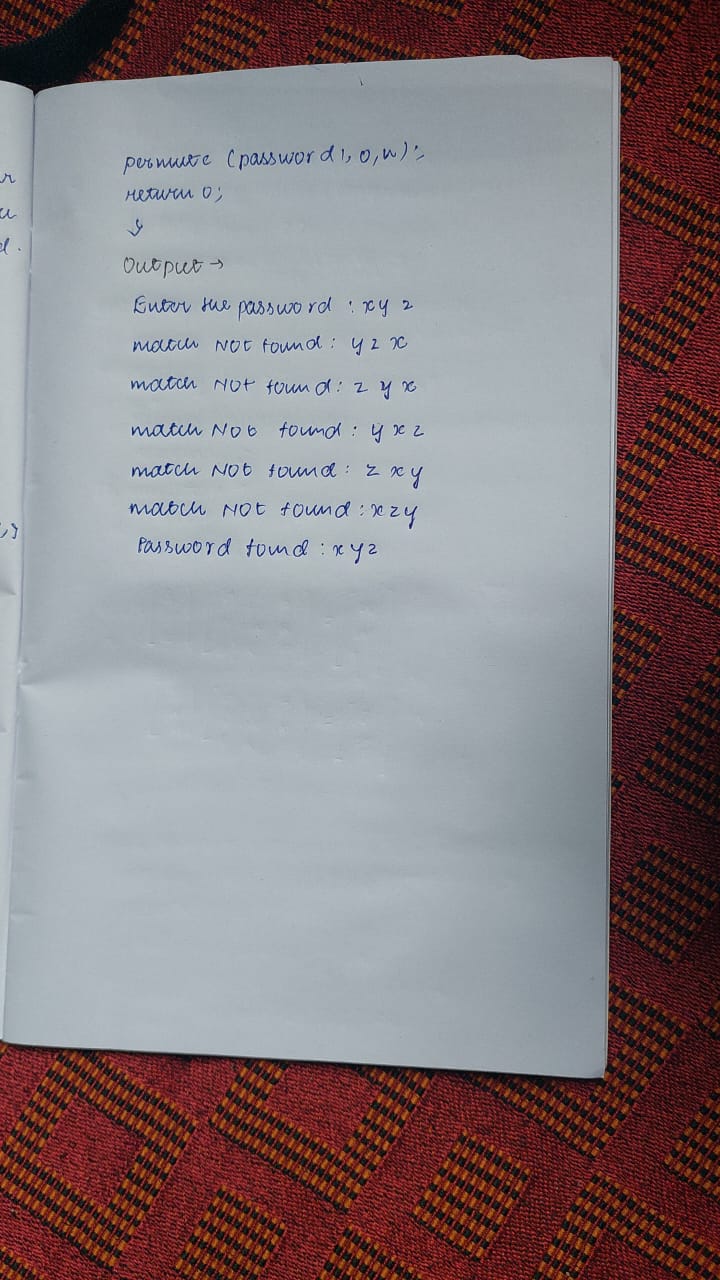 permute (password1, 0, n);
return 0;
}
Output →
Enter the password : xyz
match Not found : yzx
match Not found : zyx
match Not found : yxz
match Not found : zxy
match Not found : xzy
Password found : xyz